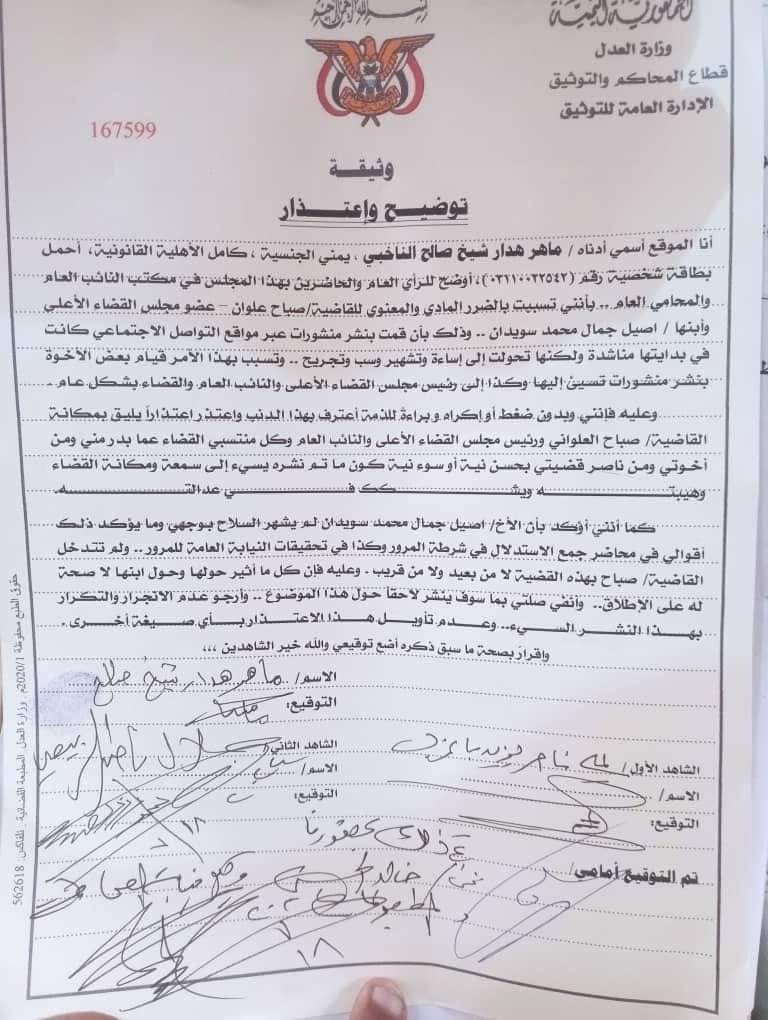 بسم الله الرحمن الرحيم
الجمهورية اليمنية
وزارة العدل
قطاع المحاكم والتوثيق
الإدارة العامة للتوثيق
167599
وثيقة
توضيح وإعتذار
أنا الموقع أسمي أدناه / ماهر هدار شيخ صالح الناخبي ، يمني الجنسية ، كامل الأهلية القانونية، أحمل
بطاقة شخصية رقم (٠٣١١٠٠٢٢٥٤٢)، أوضح للرأي العام والحاضرين بهذا المجلس في مكتب النائب العام
والمحامي العام .. بأنني تسببت بالضرر المادي والمعنوي للقاضية/صباح علوان – عضو مجلس القضاء الأعلى
وأبنها / اصيل جمال محمد سويدان .. وذلك بأن قمت بنشر منشورات عبر مواقع التواصل الاجتماعي كانت
في بدايتها مناشدة ولكنها تحولت إلى إساءة وتشهير وسب وتجريح .. وتسبب بهذا الأمر قيام بعض الأخوة
بنشر منشورات تسيئ إليها وكذا إلى رئيس مجلس القضاء الأعلى والنائب العام والقضاء بشكل عام .
وعليه فإنني وبدون ضغط أو إكراه و براءةً للذمة أعترف بهذا الذنب واعتذر اعتذاراً يليق بمكانة
القاضية/ صباح العلواني ورئيس مجلس القضاء الأعلى والنائب العام وكل منتسبي القضاء عما بدر مني ومن
أخوتي ومن ناصر قضيتي بحسن نية أو سوء نية كون ما تم نشره يسيء إلى سمعة ومكانة القضاء
وهيبته ويشكك في عدالته.
كما أنني أؤكد بأن الأخ/ اصيل جمال محمد سويدان لم يشهر السلاح بوجهي وما يؤكد ذلك
أقوالي في محاضر جمع الاستدلال في شرطة المرور وكذا في تحقيقات النيابة العامة للمرور .. ولم تتدخل
القاضية/ صباح بهذه القضية لا من بعيد ولا من قريب . وعليه فإن كل ما أثير حولها وحول ابنها لا صحة
له على الإطلاق.. وأنفي صلتي بما سوف ينشر لاحقاً حول هذا الموضوع .. وأرجو عدم الانجرار والتكرار
بهذا النشر السيء.. وعدم تأويل هذا الاعتذار بأي صيغة أخرى .
واقرار بصحة ما سبق ذكره أضع توقيعي والله خير الشاهدين ،،،
الاسم/ ماهر هدار شيخ صالح
التوقيع:
الشاهد الأول/
الاسم/
التوقيع:
الشاهد الثاني/
الاسم/
التوقيع:
تم التوقيع أمامي/
حقوق الطبع محفوظة 2020/1م. وزارة العدل المطبعة القضائية - تلفاكس: 562618